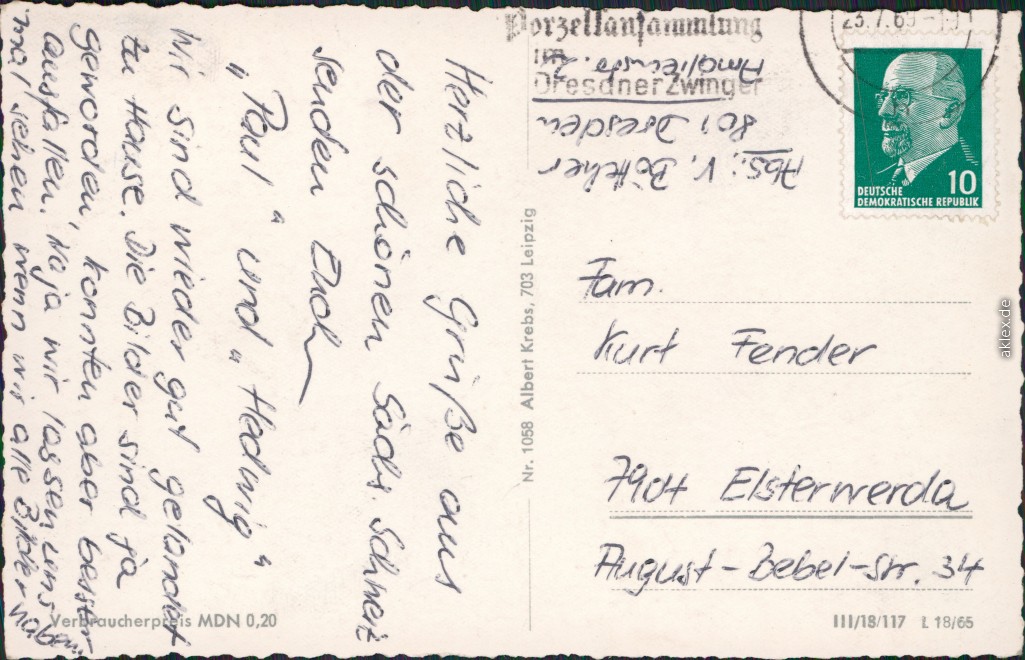 Porzellansammlung
im
Dresdner Zwinger
23.7.69
DEUTSCHE
DEMOKRATISCHE REPUBLIK
10
Abs.: V. Böttcher
801 Dresden
Amalienstr. 2
Herzliche Grüße aus
der schönen Sächs. Schweiz
senden Euch
"Paul" und "Hedwig"
Wir sind wieder gut gelandet
zu Hause. Die Bilder sind ja
geworden, konnten aber besser
ausfallen. Naja wir lassen uns
mal sehen wenn wir alle Bilder
Nr. 1058 Albert Krebs, 703 Leipzig
Fam.
Kurt Fender
7904 Elsterwerda
August-Bebel-Str. 34
Verbraucherpreis MDN 0,20
III/18/117 L 18/65
aklex.de